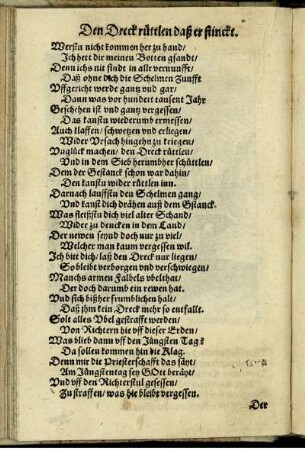 Den Dreck rüttlen daß er stinckt.
Werstu nicht kommen her zu hand/
Ich hett dir meinen Botten gsandt/
Denn ichs nit findt in alle vernunfft/
Daß ohne dich die Schelmen Zunfft
Vffgericht werde gantz vnd gar/
Dann was vor hundert tausent Jahr
Geschehen ist vnd gantz vergessen/
Das kanstu wiederumb ermessen/
Auch klaffen/ schwetzen vnd erliegen/
Wider Vrsach hingehn zu kriegen/
Vnglück machen/ den Dreck rütlen/
Vnd in dem Sieb herumbher schüttlen/
Dem der Gestanck schon war dahin/
Den kanstu wider rüttlen inn.
Darnach lauffstu den Schelmen gang/
Vnd kanst dich drähen auß dem Gstanck.
Was fleissstu dich viel alter Schand/
Wider zu dencken in dem Land/
Der newen seynd doch nur zu viel/
Welcher man kaum vergessen wil.
Ich bitt dich/ laß den Dreck nur liegen/
So bleibt verborgen vnd verschwiegen/
Manchs armen Falbels vbelthat/
Der doch darumb ein rewen hat.
Vnd sich bißher frumblichen halt/
Daß jhm kein Dreck mehr so entfallt.
Solt alles Vbel gestrafft werden/
Von Richtern hie vff dieser Erden/
Was blieb dann vff den Jüngsten Tag?
Da sollen kommen hin die Klag.
Denn mir die Priesterschafft das säyt/
Am Jüngstentag sey GOtt beräyt/
Vnd vff den Richterstul gesessen/
Zu straffen/ was hie bleibt vergessen.
Der